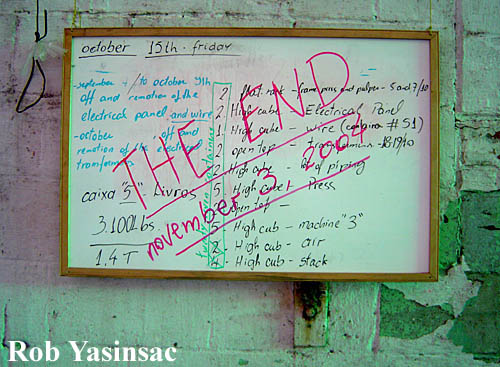 october 15th - friday
- september to october 9th
off and remotion of the
electrical panel and wire
- october off and
remotion of the electrical
tranformers
caixa "5" Livros
3.100Lbs
1.4 T
2 flat rack - frame press and pulper - 5 and 7/10
2 High cube - Electrical Panel
1 High cube - wire #51)
2 open top -
2 High cube - of piping
5 High cube Press
open top -
5 - High cub - machine "3"
2 - High cub - air
4 - High cub - stack
THE END
november 3 2004
Rob Yasinsac